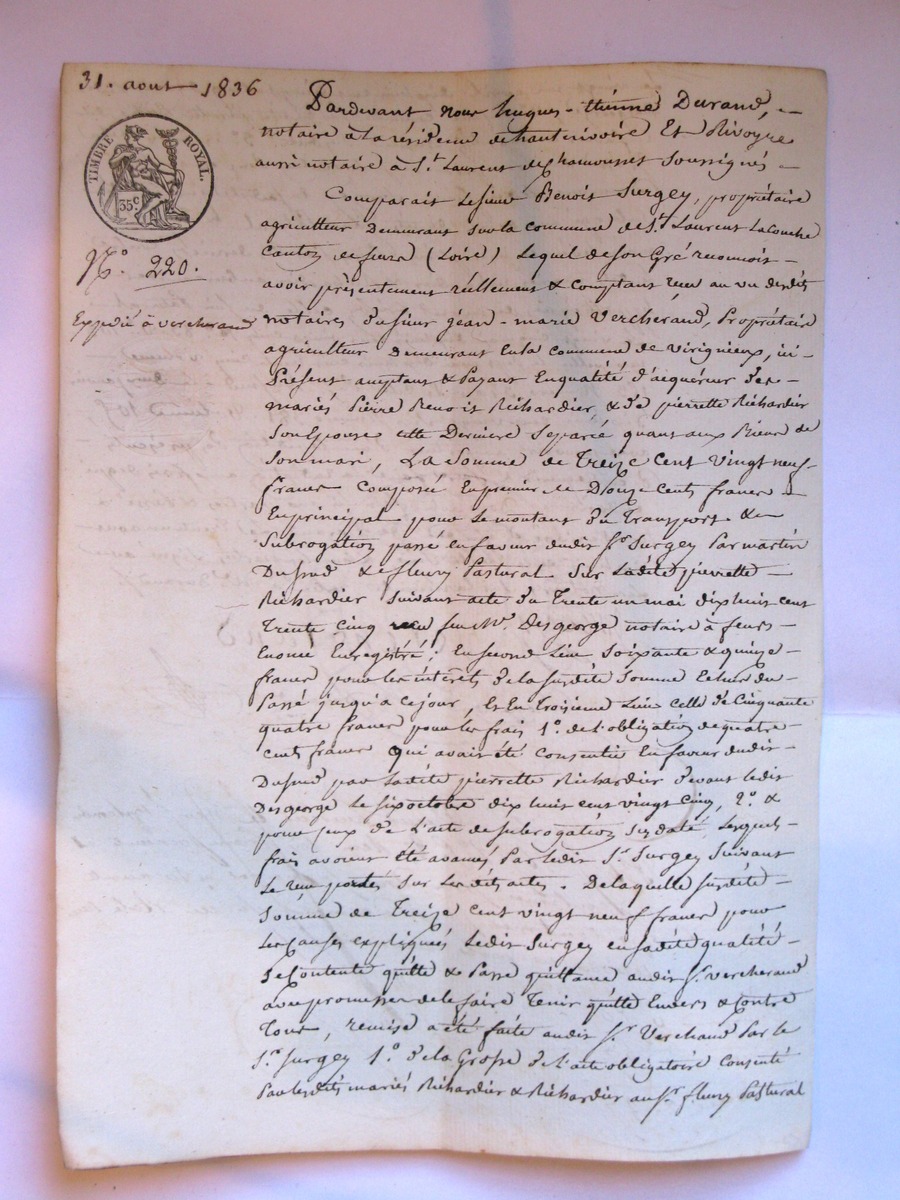 31. aout 1836
TIMBRE ROYAL.
35c
N.° 220.
Expedié à vercherand
Pardevant nous hugues-étienne Durand,
notaire à la résidence de hauterivoire Et Rivoyre
aussi notaire à St. Laurent de chamousset soussignés
Comparait Le sieur Benoit Surgey, propriétaire
agriculteur demeurant sur la commune de St. Laurent La Conche
Canton de feurs (Loire) Lequel de son Gré reconnoit
avoir présentement réellement & comptant reçu au vu desdits
notaires du sieur jéan-marie Vercherand, Propriétaire
agriculteur demeurant En la commune de virignieux, ici
Présent acceptant & Payant En qualité d'acquéreur des
mariés Pierre Benoit Richardier, & de pierrette Richardier
son Epouse cette Derniere séparée quant aux Biens de
son mari, La Somme de Treize Cent Vingt neuf
francs Composée En premier de Douze Cents francs
En principal pour Le montant du Transport & en
Subrogation passé en faveur dudit Sr. Surgey Par martin
Dufsud & fleury Pastural Sur Ladite pierrette
Richardier suivant acte du Trente un mai dix huit cent
Trente cinq reçu feu Me. Desgeorge notaire à feurs
Enoncé Enregistré; En second Lieu soixante & quinze
francs pour Les intérêts de la susdite somme Echus du
Passé jusqu'à ce jour, Et En Troisieme Lieu Celle de Cinquante
quatre francs pour Les frais 1.° de L'obligation de quatre
Cent francs qui avait été Consentie En faveur dudit
Dufsud par Ladite pierrette Richardier devant Ledit
Desgeorge Le six octobre dix huit cent vingt Cinq, 2.° &
pour ceux de L'acte de subrogation susdaté, Lesquels
frais avoient été avancés Par Ledit Sr. Surgey Suivant
Le reçu portés sur Lesdits actes. De laquelle susdite
somme de Treize cent vingt neuf francs pour
Les Causes expliquées Ledit Surgey en sadite qualité
se Contente quitte & Passe quittance audit Sr. Vercherand
avec promesse de le faire Tenir quitte Envers & Contre
Tous, remise a été faite audit Sr. Verchand Par le
Sr. Surgey 1.° de la Grosse de L'acte obligatoire Consenti
Par Lesdits mariés Richardier & Richardier au Sr. fleury Pastural